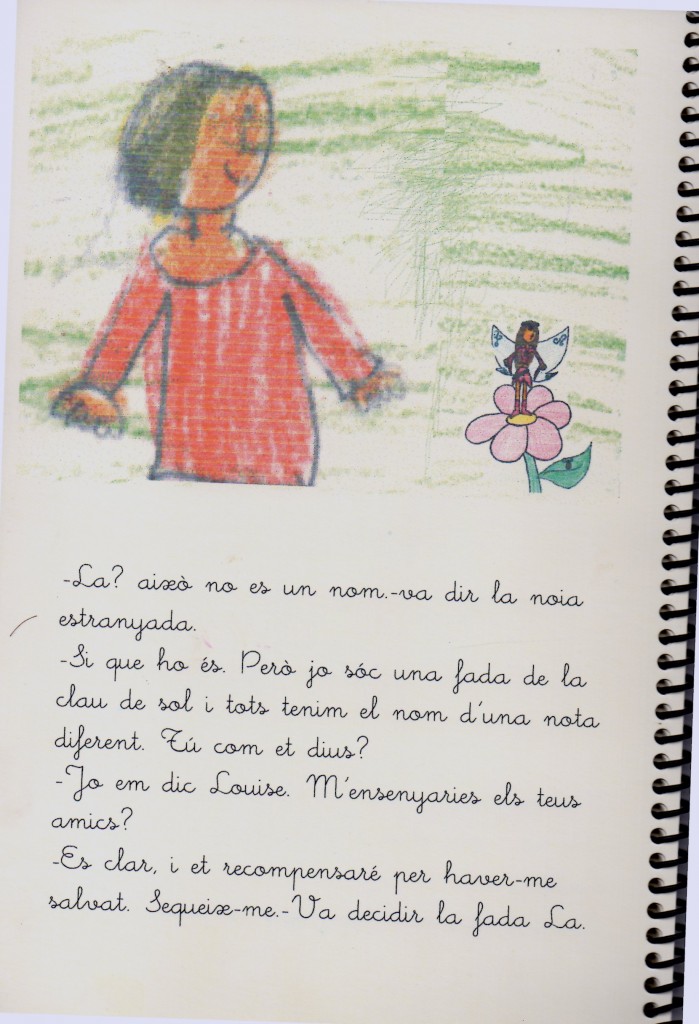 -La? això no es un nom.-va dir la noia
estranyada.
-Si que ho és. Però jo sóc una fada de la
clau de sol i tots tenim el nom d'una nota
diferent. Tú com et dius?
-Jo em dic Louise. M'ensenyaries els teus
amics?
-Es clar, i et recompensaré per haver-me
salvat. Sequeix-me.-Va decidir la fada La.